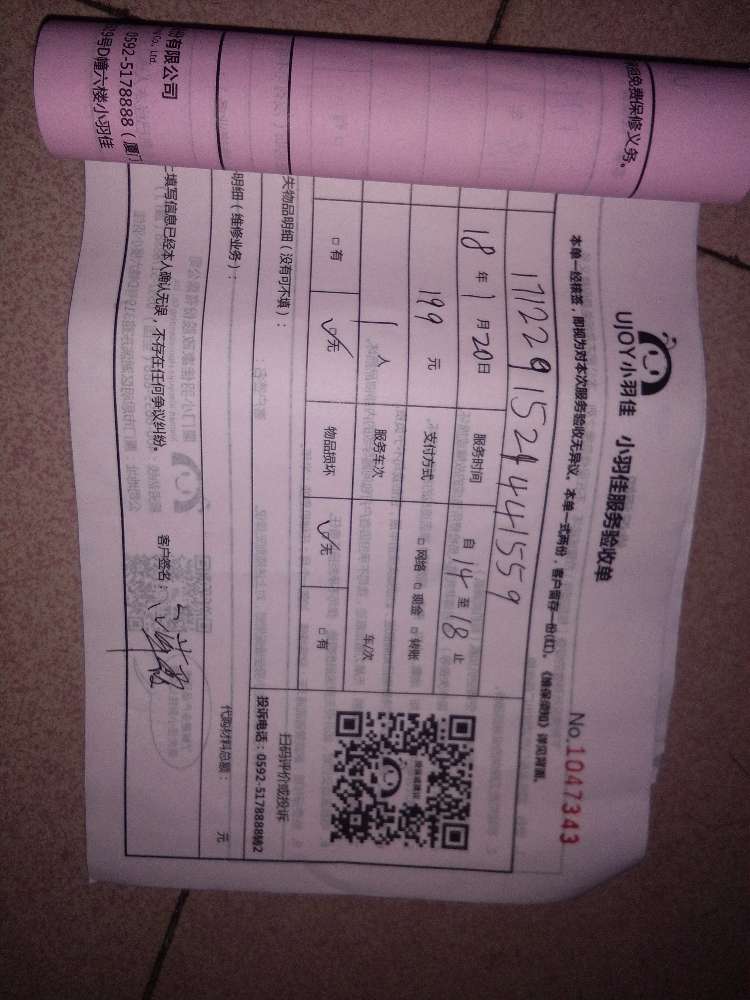 UJOY小羽佳 小羽佳服务验收单
No.1047343
本单一经核签，即视为对本次服务验收无异议。本单一式两份，客户留存一份(红)。《维保须知》详见背面。
171229152441559
18年1月20日 服务时间 自14至18止
199元 支付方式 □网络 □现金 □转账
1人 服务车次 车/次
□有 ☑无 物品损坏 ☑无 □有
失物品明细（没有可不填）：
扫码评价或投诉
投诉电话：0592-5178888转2
明细（维修业务）：
代购材料总额： 元
上填写信息已经本人确认无误，不存在任何争议纠纷。 客户签名：
免费保修义务。
有限公司
Co., Ltd.
0592-5178888（厦门
39号D幢六楼小羽佳